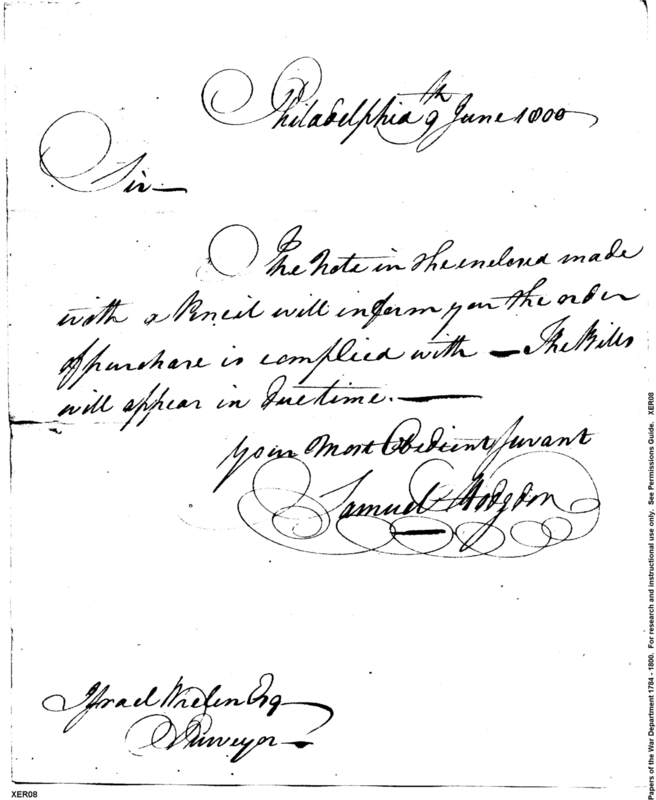 Philadelphia 9th June 1800
Sir —
The Note in the enclosed made
with a Pencil will inform you the order
of purchase is complied with — The Bills
will appear in due time. —
your Most Obedient Servant
Samuel Hodgdon
Israel Whelen Esq
Purveyor —
XER08
Papers of the War Department 1784 - 1800. For research and instructional use only. See Permissions Guide. XER08